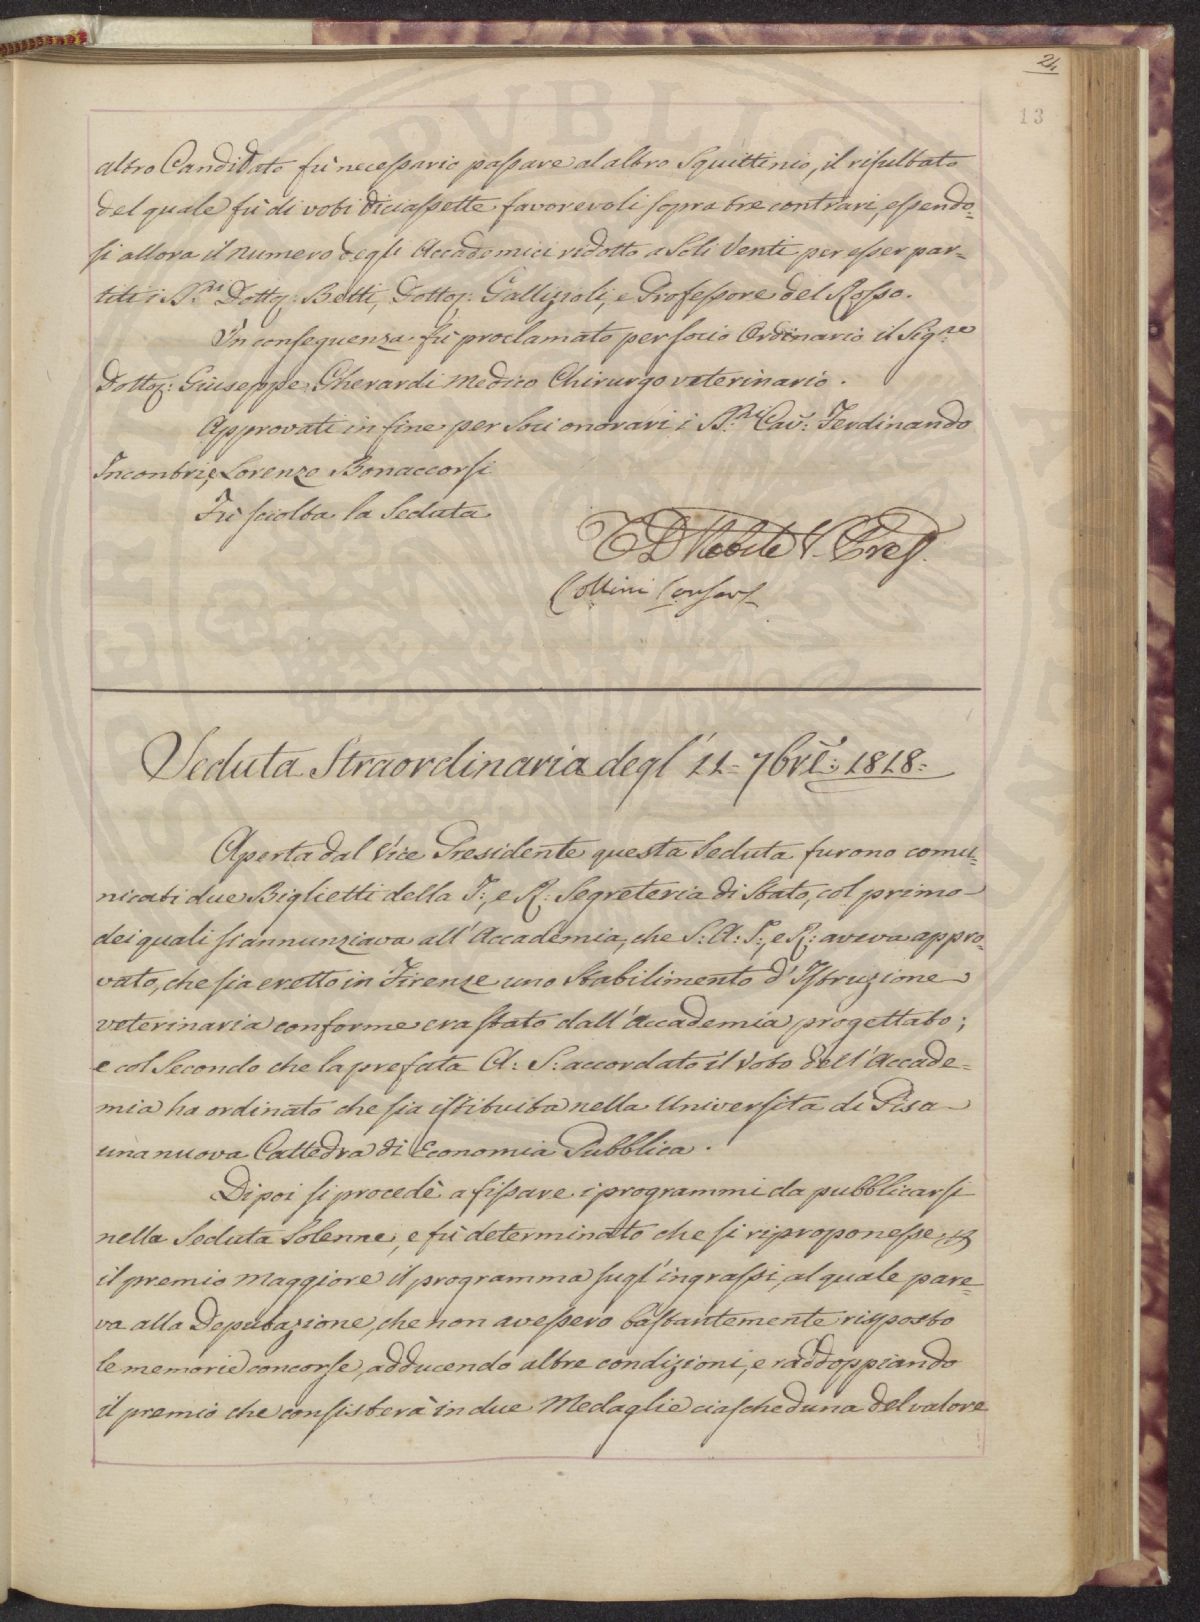 24
13
altro Candidato fù necessario passare al altro Squittinio, il risultato
del quale fù di voti diciassette favorevoli sopra tre contrari, essendo=
si allora il numero degli Accademici ridotto a Soli Venti per esser par=
titi i SS.ri Dottor: Betti, Dottor: Gallizioli, e Professore del Rosso.
In conseguenza fù proclamato per socio Ordinario il Sig.re
Dottor: Giuseppe Gherardi Medico Chirurgo veterinario.
Approvati in fine per Soci onorari i SS.ri Cav: Ferdinando
Incontri, e Lorenzo Bonaccorsi
Fù sciolta la Seduta
Nobile V. Pres.
Collini
Seduta Straordinaria degl' 11= 7bre: 1818=
Aperta dal Vice Presidente questa Seduta furono comu=
nicati due Biglietti della I:, e R: Segreteria di Stato, col primo
dei quali si annunziava all'Accademia, che S: A: I:, e R: aveva appro=
vato, che sia eretto in Firenze uno Stabilimento d'Istruzione
veterinaria conforme era stato dall'Accademia progettato;
e col Secondo che la prefata A: S: accordato il Voto dell'Accade=
mia ha ordinato che sia istituita nella Università di Pisa
una nuova Cattedra di Economia Pubblica.
Dipoi si procedè a fissare i programmi da pubblicarsi
nella Seduta Solenne, e fù determinato che si riproponesse
il premio Maggiore il programma sugl'ingrassi, al quale pare=
va alla Deputazione, che non avessero bastantemente risposto
le memorie concorse, adducendo altre condizioni, e raddoppiando
il premio che consisterà in due Medaglie ciascheduna del valore